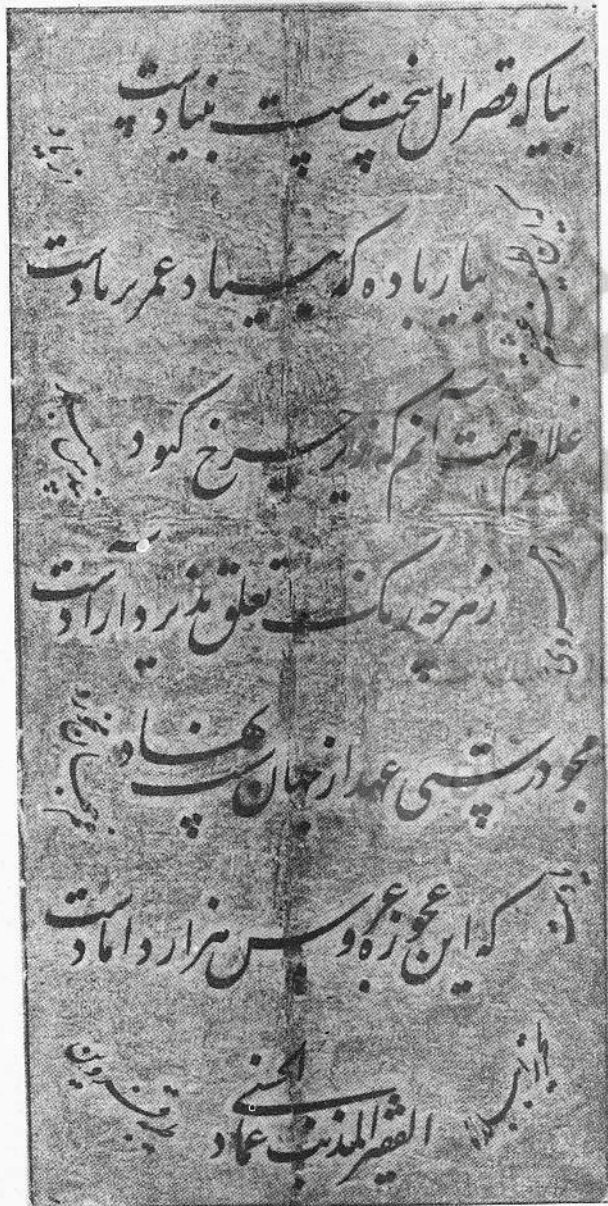 بیا که قصر امل سخت سست بنیادست
بیار باده که بنیاد عمر بر بادست
غلام همت آنم که زیر چرخ کبود
ز هر چه رنگ تعلق پذیرد آزادست
مجو درستی عهد از جهان سست نهاد
که این عجوزه عروس هزار دامادست
الفقیر المذنب عماد الحسنی